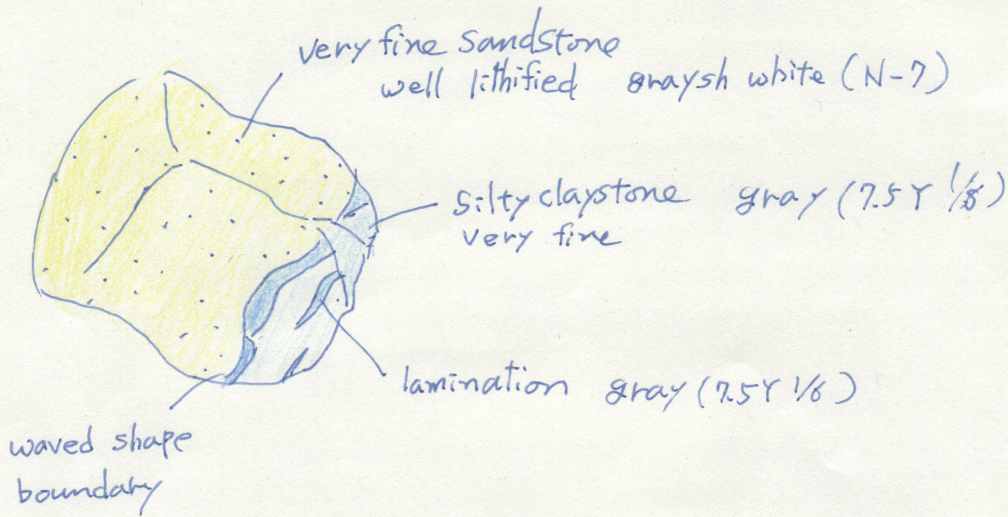 very fine sandstone
well lithified graysh white (N-7)
silty claystone gray (7.5Y 1/8)
very fine
lamination gray (7.5Y 1/6)
waved shape
boundary